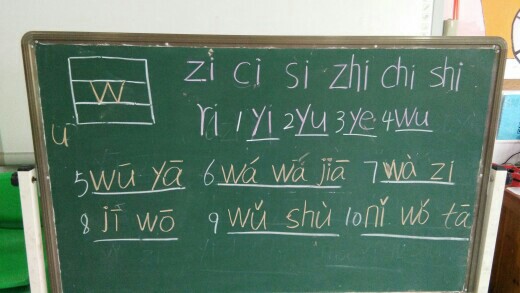 w
zi ci si zhi chi shi
ri 1 yi 2 yu 3 ye 4 wu
ū
5 wū yā 6 wá wā jiā 7 wà zi
8 jī wō 9 wǔ shù 10 nǐ wǒ tā